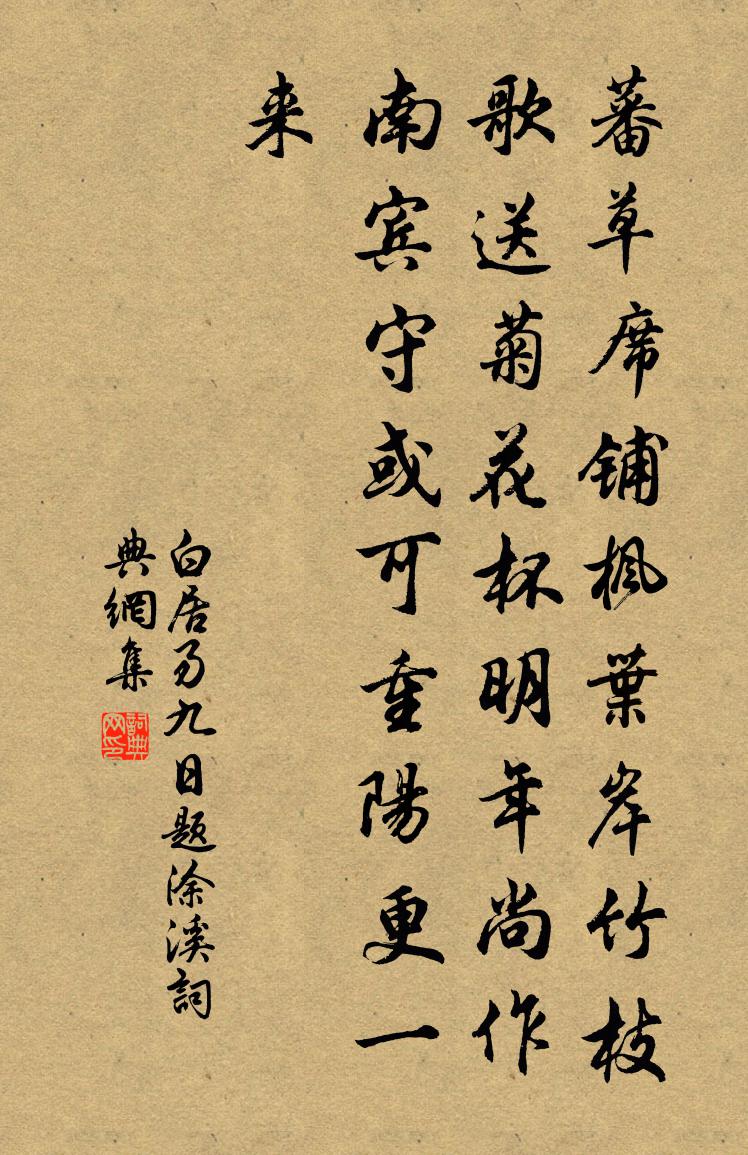 蕃草席铺枫葉岸竹枝
歌送菊花杯明年尚作
南宾守或可重陽更一
来
白居易九日题涂溪詞
典網集
詞典
网印